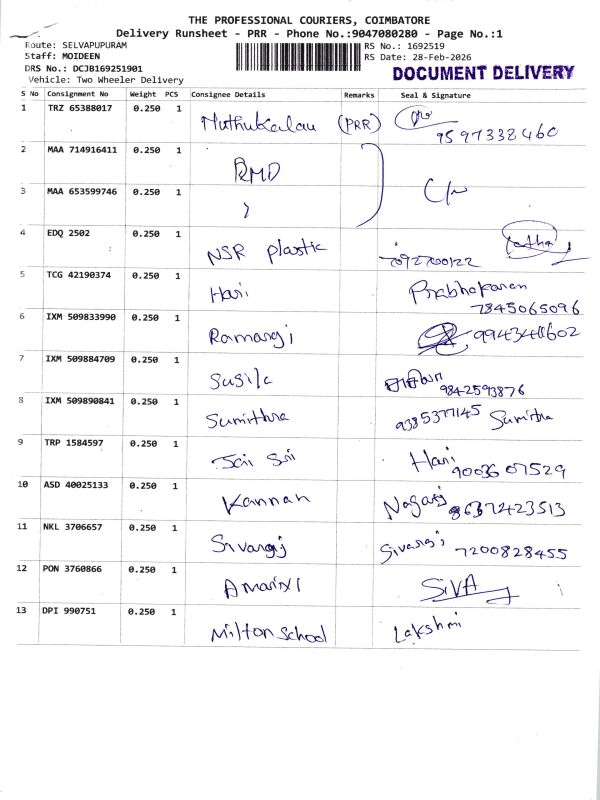 THE PROFESSIONAL COURIERS, COIMBATORE
Delivery Runsheet - PRR - Phone No.:9047080280 - Page No.:1
Route: SELVAPUPURAM
RS No.: 1692519
Staff: MOIDEEN
RS Date: 28-Feb-2026
DRS No.: DCJB169251901
DOCUMENT DELIVERY
Vehicle: Two Wheeler Delivery
S No Consignment No Weight PCS Consignee Details Remarks Seal & Signature
1 TRZ 65388017 0.250 1 Muthukalau (PRR)
9597338460
2 MAA 714916411 0.250 1 RMD
3 MAA 653599746 0.250 1
4 EDQ 2502 0.250 1 NSR plastic
7092700122
5 TCG 42190374 0.250 1 Hari Prabhakaran
7845065096
6 IXM 509833990 0.250 1 Ramangi
7 IXM 509884709 0.250 1 Susila
9842593876
8 IXM 509890841 0.250 1 Sumithra 9385377145 Sumitra
9 TRP 1584597 0.250 1 Jai Sri Hari
9003607529
10 ASD 40025133 0.250 1 Kannan Nagaraj 8637423513
11 NKL 3706657 0.250 1 Sivangi Sivangi 7200828455
12 PON 3760866 0.250 1 SIVA
13 DPI 990751 0.250 1 Milton School Lakshmi